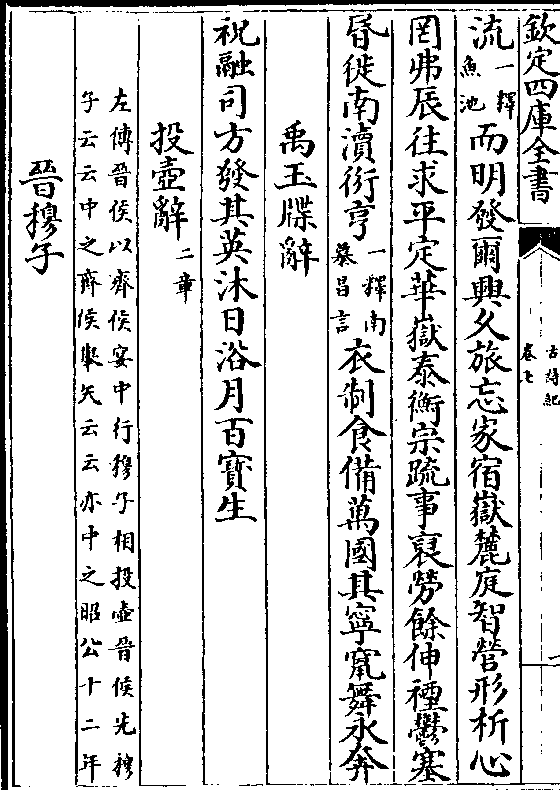 欽定四庫全書
古詩紀
卷七
流一釋魚池而明發爾興久旅忘家宿嶽麓庭智營形析心
罔弗辰往求平定華嶽泰衡宗疏事裒勞餘伸禋鬱塞
昏徙南瀆衍亨一釋南暴昌言衣制食備萬國其寧竄舞永奔
禹玉牒辭
祝融司方發其英沐日浴月百寶生
投壺辭二章
左傳晉侯以齊侯宴中行穆子相投壺晉侯先穆
子云云中之齊侯舉矢云云亦中之昭公十二年
晉穆子